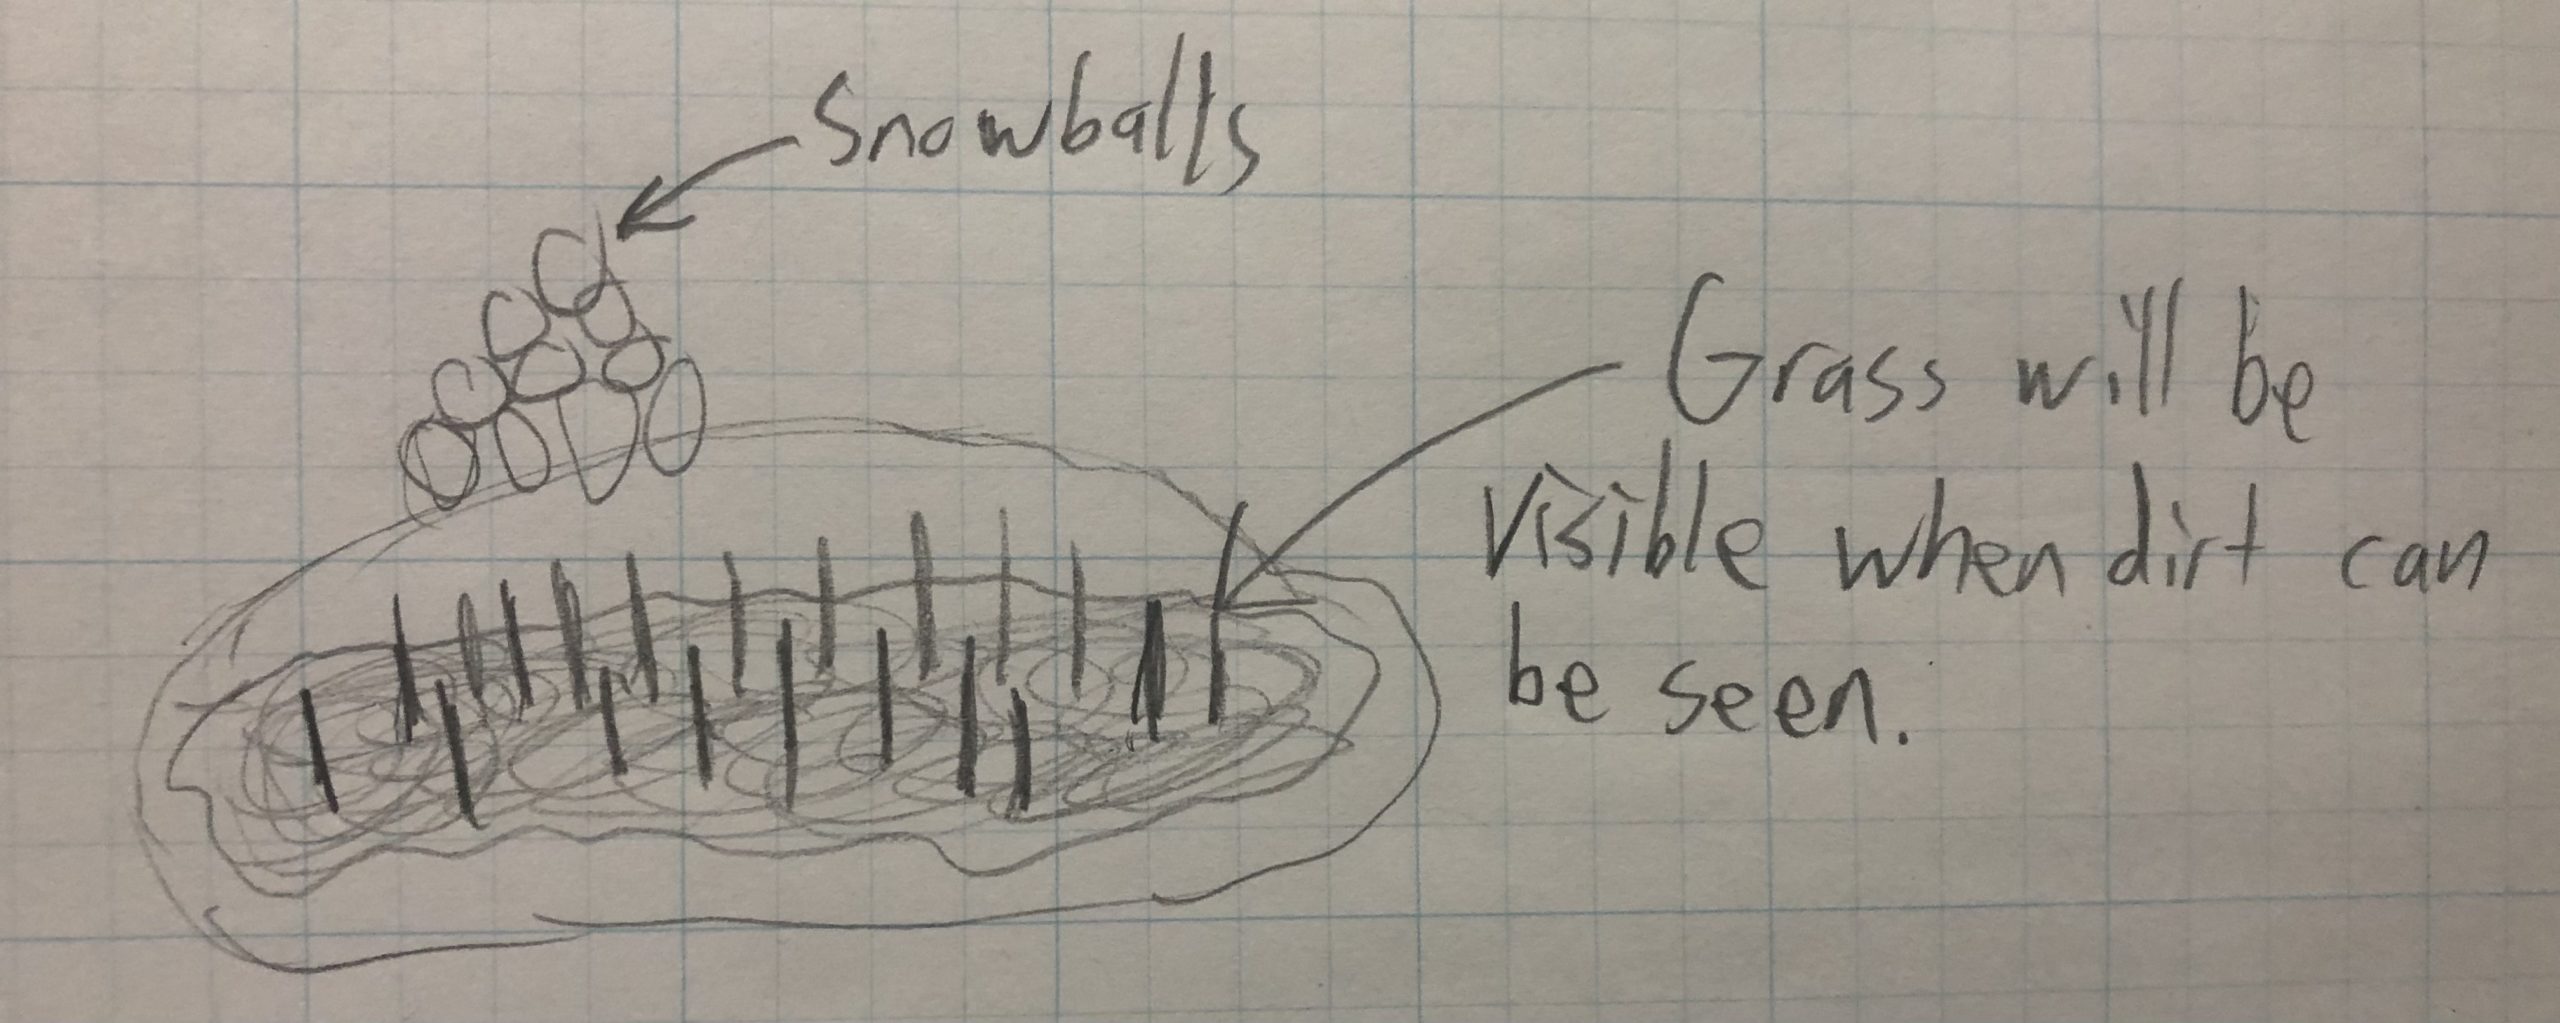 Snowballs
Grass will be
visible when dirt can
be seen.